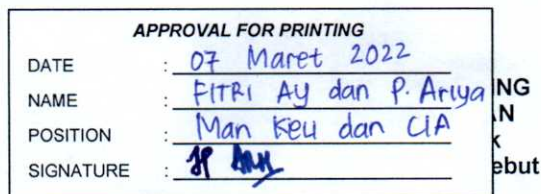 APPROVAL FOR PRINTING
DATE : 07 Maret 2022
NAME : FITRI Ay dan P. Ariya
POSITION : Man Keu dan CIA
SIGNATURE :
NG
AN
k
ebut